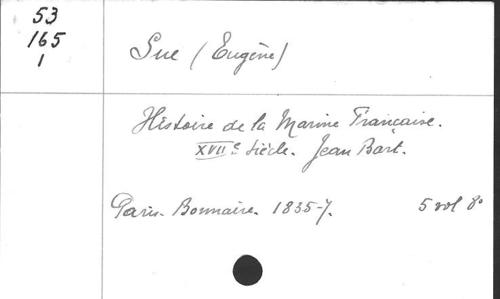 53
165
1
Sue (Eugène)
Histoire de la Marine Française.
XVIIe Siècle. Jean Bart.
Paris. Bonnaire. 1835-7. 5 vol 8o